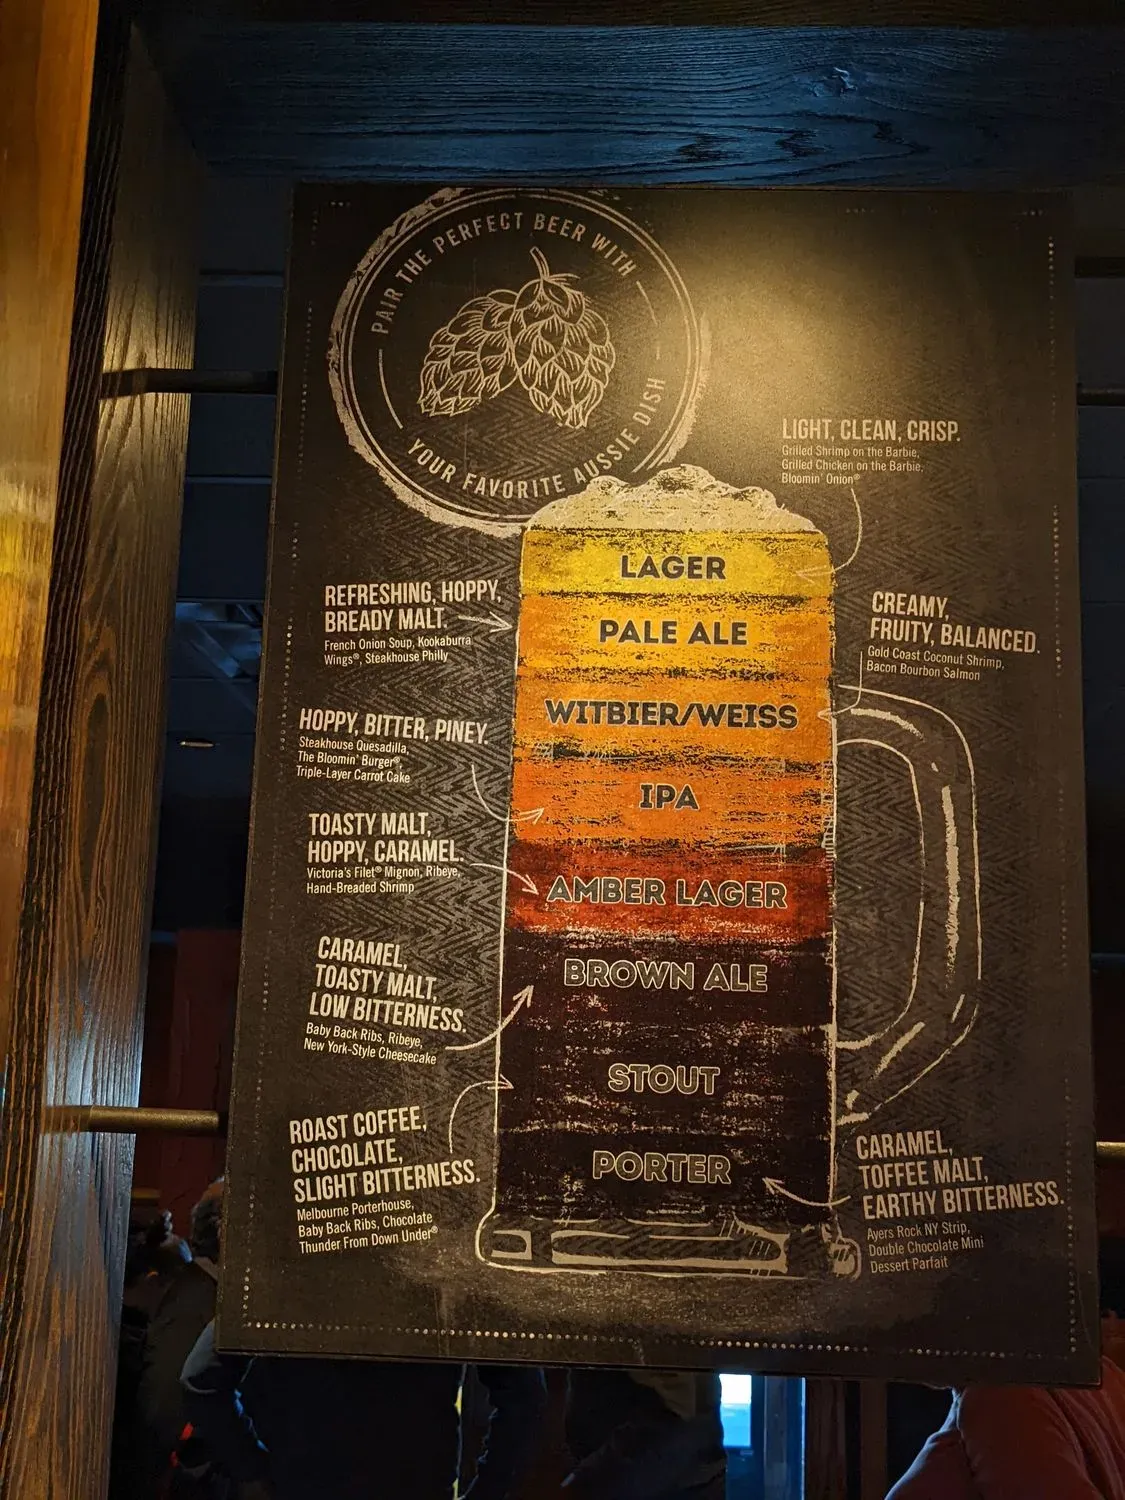 PAIR THE PERFECT BEER WITH
YOUR FAVORITE AUSSIE DISH
LIGHT, CLEAN, CRISP.
Grilled Shrimp on the Barbie,
Grilled Chicken on the Barbie,
Bloomin' Onion®
LAGER
REFRESHING, HOPPY,
BREADY MALT.
French Onion Soup, Kookaburra
Wings®, Steakhouse Philly
PALE ALE
CREAMY,
FRUITY, BALANCED.
Gold Coast Coconut Shrimp,
Bacon Bourbon Salmon
WITBIER/WEISS
HOPPY, BITTER, PINEY.
Steakhouse Quesadilla,
The Bloomin' Burger®,
Triple-Layer Carrot Cake
IPA
TOASTY MALT,
HOPPY, CARAMEL.
Victoria's Filet® Mignon, Ribeye,
Hand-Breaded Shrimp
AMBER LAGER
CARAMEL,
TOASTY MALT,
LOW BITTERNESS.
Baby Back Ribs, Ribeye,
New York-Style Cheesecake
BROWN ALE
STOUT
ROAST COFFEE,
CHOCOLATE,
SLIGHT BITTERNESS.
Melbourne Porterhouse,
Baby Back Ribs, Chocolate
Thunder From Down Under®
PORTER
CARAMEL,
TOFFEE MALT,
EARTHY BITTERNESS.
Ayers Rock NY Strip,
Double Chocolate Mini
Dessert Parfait